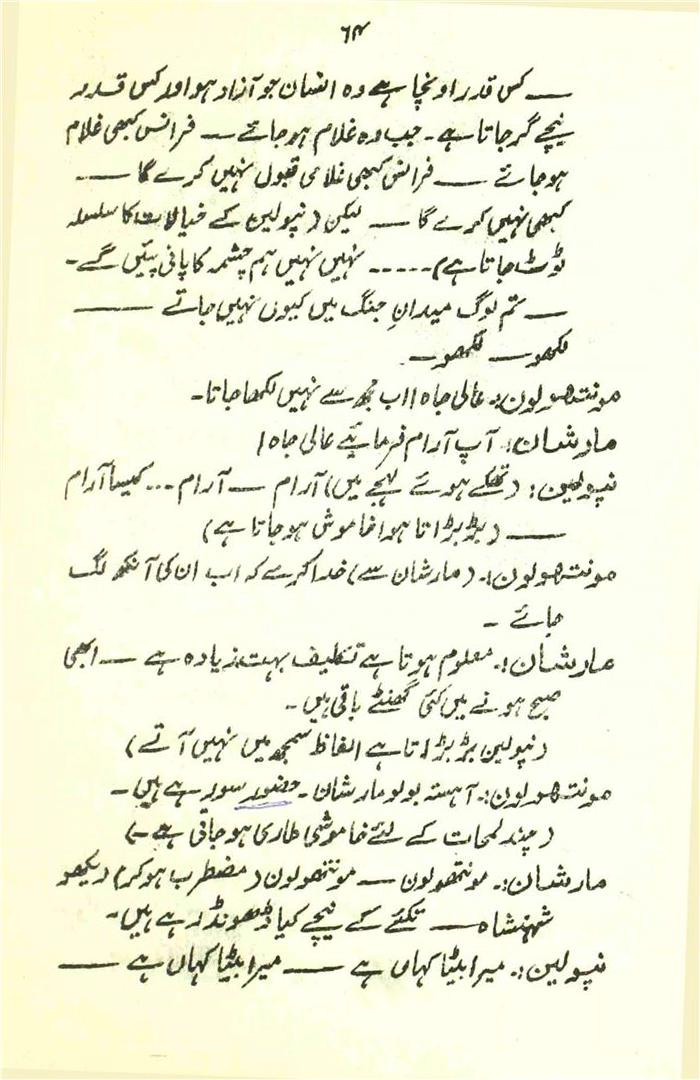 ۶۴
— کس قدر اونچا ہے وہ انسان جو آزاد ہو اور کس قدر
نیچے گر جاتا ہے۔ جب وہ غلام ہو جائے — فرانس کبھی غلام
ہو جائے — فرانس کبھی غلامی قبول نہیں کرے گا —
کبھی نہیں کرے گا — لیکن (نپولین کے خیالات کا سلسلہ
ٹوٹ جاتا ہے) ۔۔۔۔۔ نہیں نہیں ہم چشمہ کا پانی پئیں گے۔
— تم لوگ میدانِ جنگ میں کیوں نہیں جاتے —
لکھو — لکھو —
مونتھولون:۔ عالی جاہ! اب مجھ سے نہیں لکھا جاتا۔
مارشان:۔ آپ آرام فرمائیے عالی جاہ!
نپولین: (تھکے ہوئے لہجے میں) آرام — آرام ... کیسا آرام
— (بڑبڑاتا ہوا خاموش ہو جاتا ہے)
مونتھولون:۔ (مارشان سے) خدا کرے کہ اب ان کی آنکھ لگ
جائے ۔
مارشان:۔ معلوم ہوتا ہے تکلیف بہت زیادہ ہے — ابھی
صبح ہونے میں کئی گھنٹے باقی ہیں۔
(نپولین بڑبڑاتا ہے الفاظ سمجھ میں نہیں آتے)
مونتھولون:۔ آہستہ بولو مارشان۔ حضور سو رہے ہیں۔
(چند لمحات کے لئے خاموشی طاری ہو جاتی ہے۔)
مارشان:۔ مونتھولون — مونتھولون (مضطرب ہو کر) دیکھو
شہنشاہ — تکئے کے نیچے کیا ڈھونڈ رہے ہیں۔
نپولین:۔ میرا بیٹا کہاں ہے — میرا بیٹا کہاں ہے —